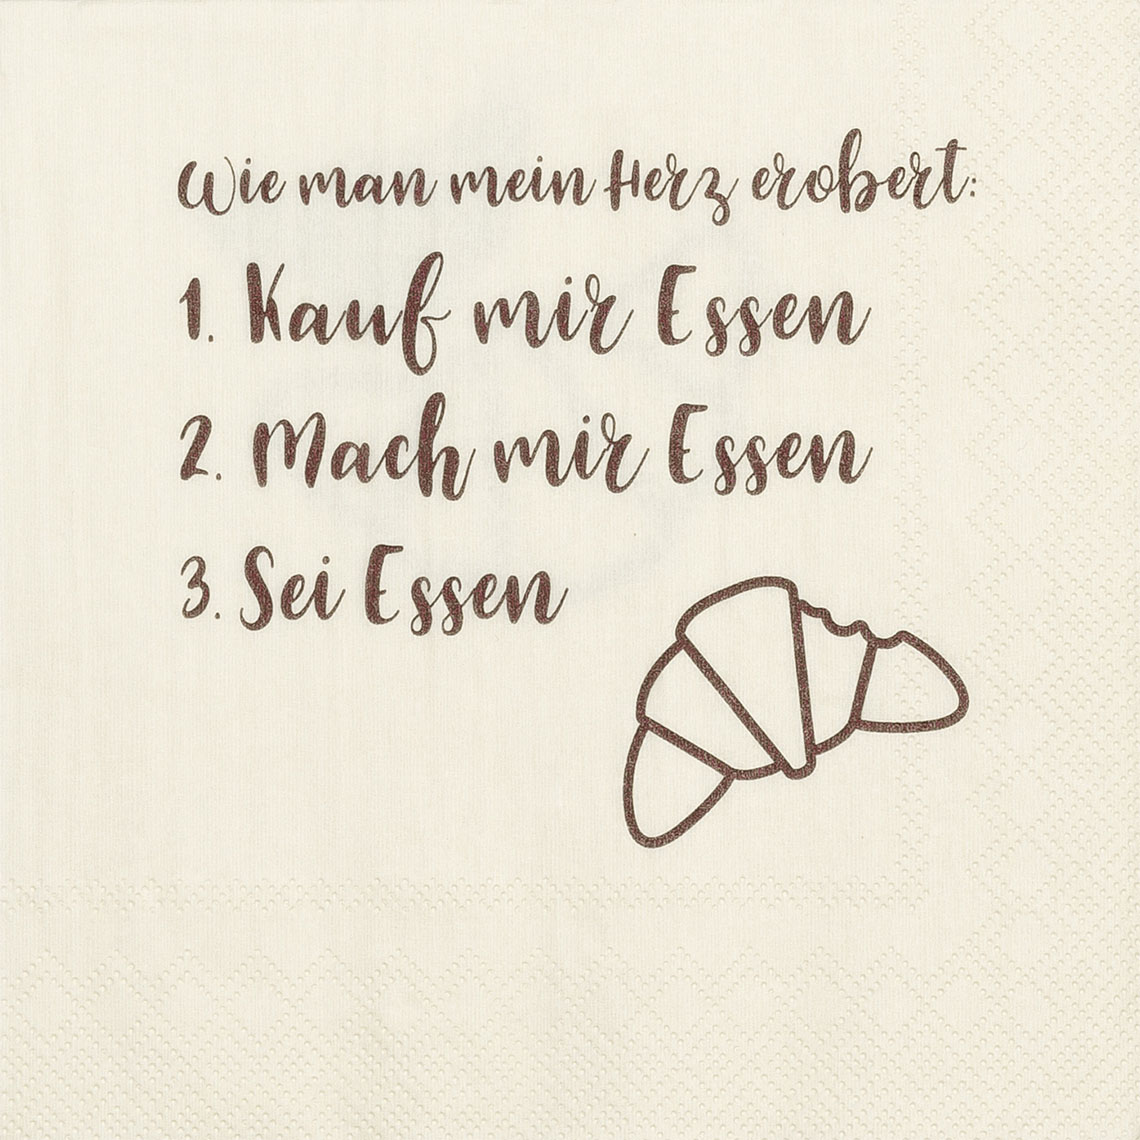 Wie man mein Herz erobert:
1. Kauf mir Essen
2. Mach mir Essen
3. Sei Essen